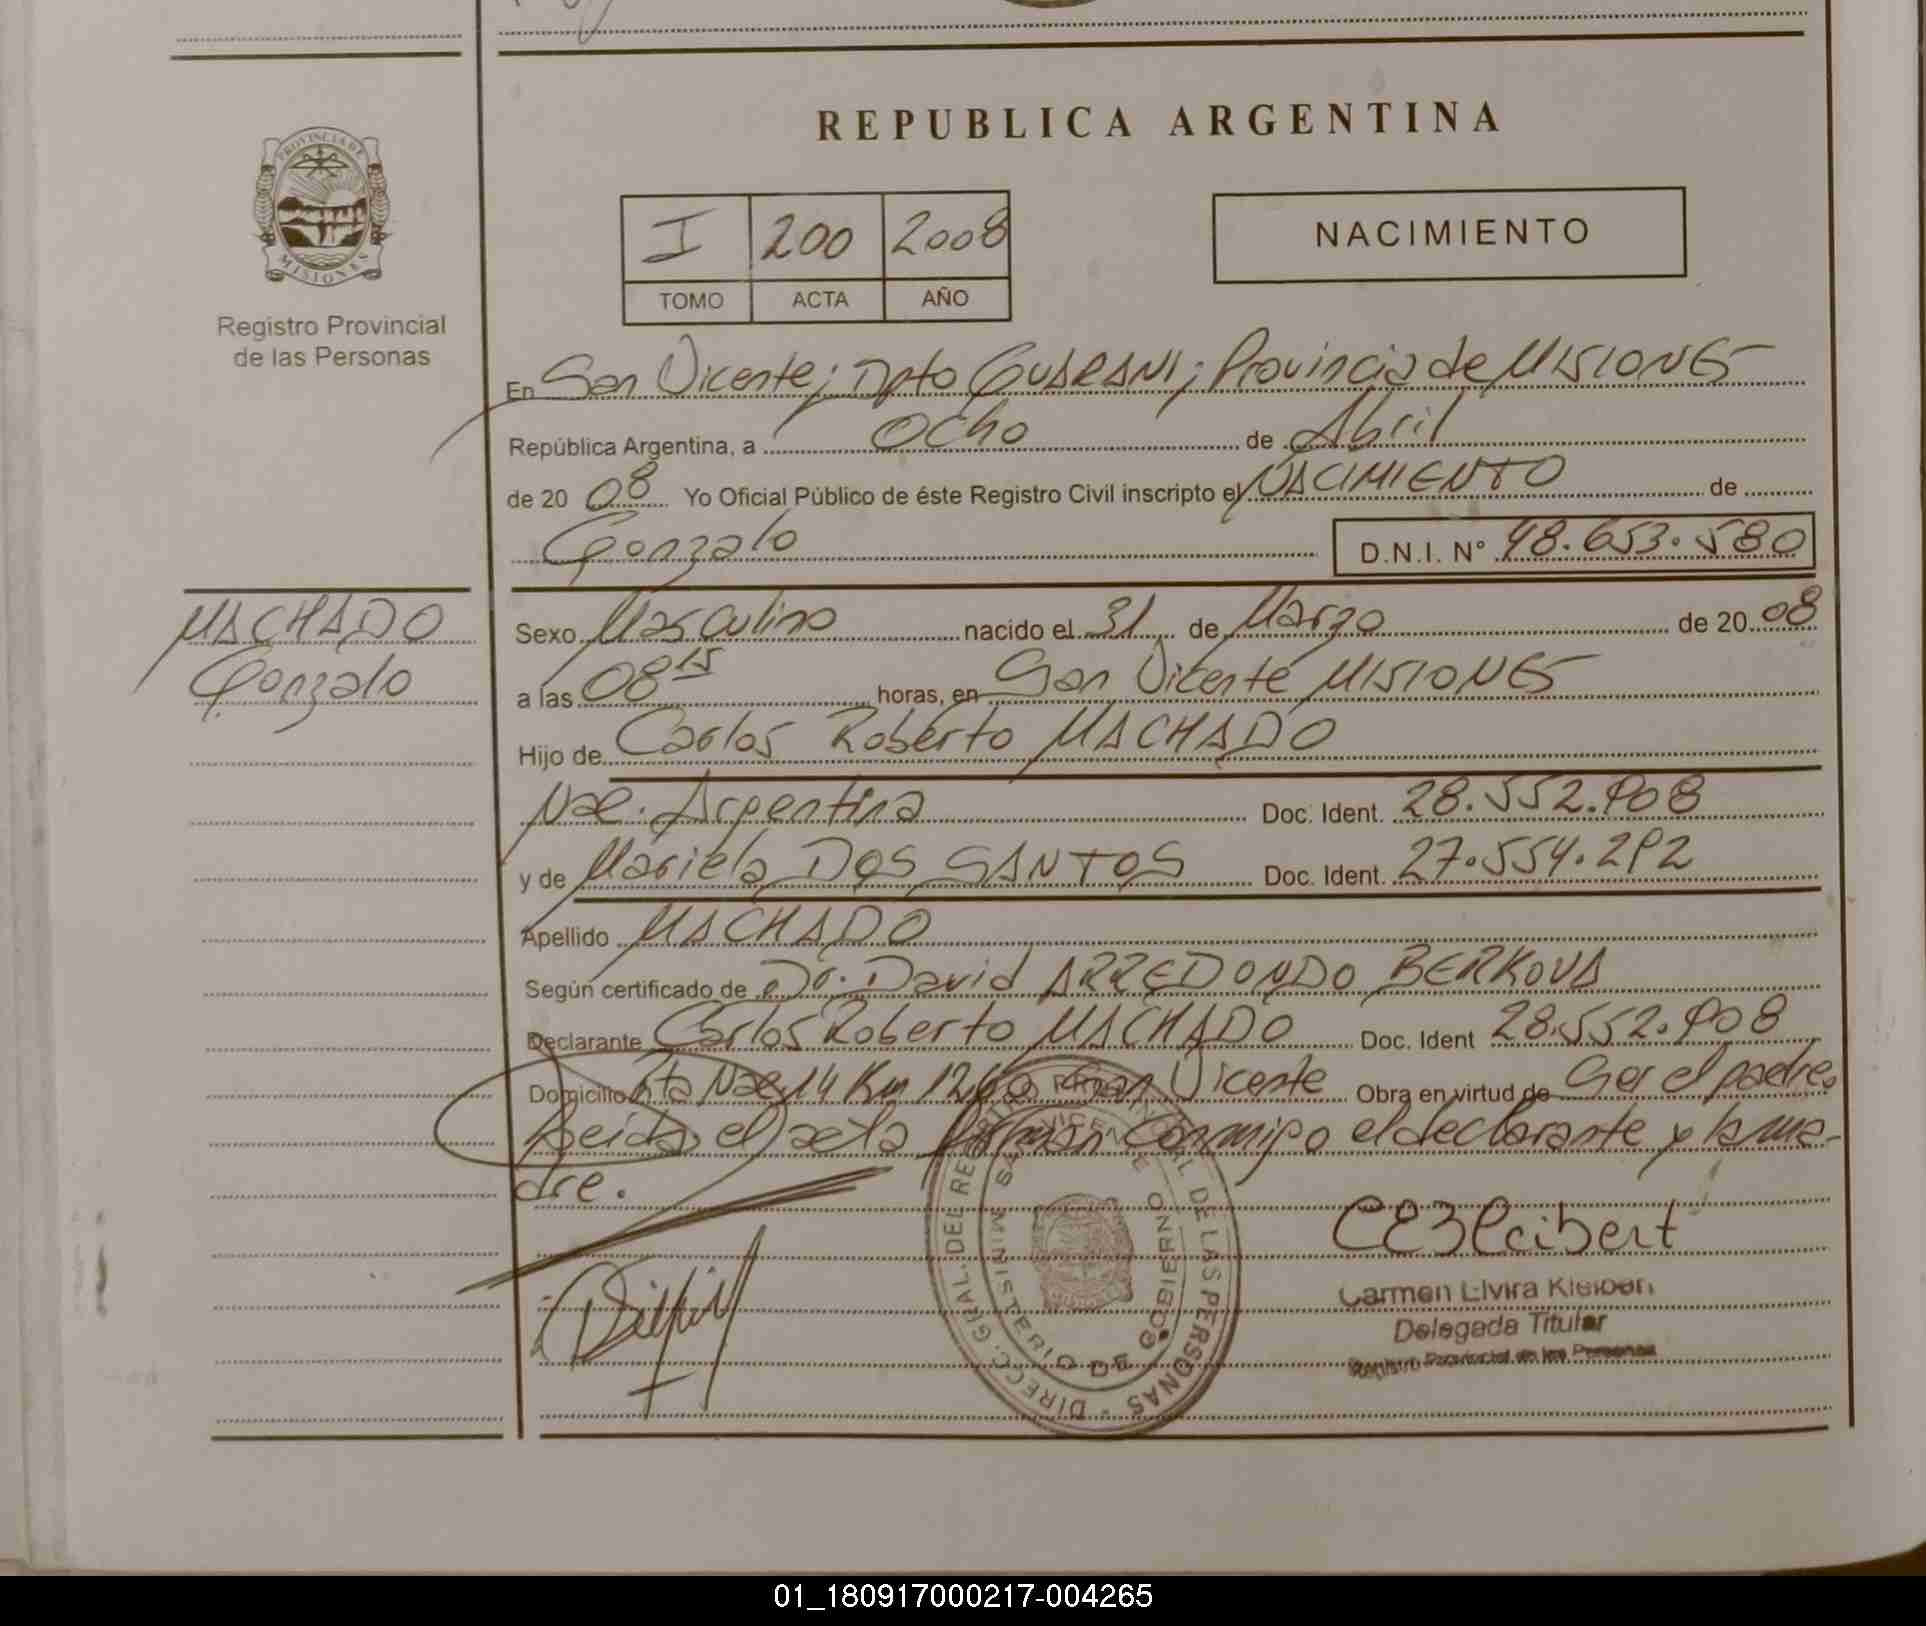 REPUBLICA ARGENTINA
PROVINCIA DE
MISIONES
I 200 2008
TOMO ACTA AÑO
NACIMIENTO
Registro Provincial
de las Personas
En San Vicente; Dpto GUARANI; Provincia de MISIONES
República Argentina, a Ocho de Abril
de 20 08 Yo Oficial Público de éste Registro Civil inscripto el NACIMIENTO de
Gonzalo D.N.I. Nº 48.653.580
MACHADO
Gonzalo
Sexo Masculino nacido el 31 de Marzo de 20 08
a las 08 15 horas, en San Vicente MISIONES
Hijo de Carlos Roberto MACHADO
Nac. Argentina Doc. Ident. 28.552.908
y de Mariela DOS SANTOS Doc. Ident. 27.554.292
Apellido MACHADO
Según certificado de Dr. David ARREDONDO BERKOVA
Declarante Carlos Roberto MACHADO Doc. Ident 28.552.908
Domicilio Rta Nac 14 Km 1260 San Vicente Obra en virtud de Ser el padre
Leída el acta firman conmigo el declarante y la ma-
dre.
DIRECC. GRAL. DEL REGISTRO PROVINCIAL DE LAS PERSONAS
SAN VICENTE
MINISTERIO DE GOBIERNO
CEKleibert
Carmen Elvira Kleibert
Delegada Titular
Registro Provincial de las Personas
01_180917000217-004265